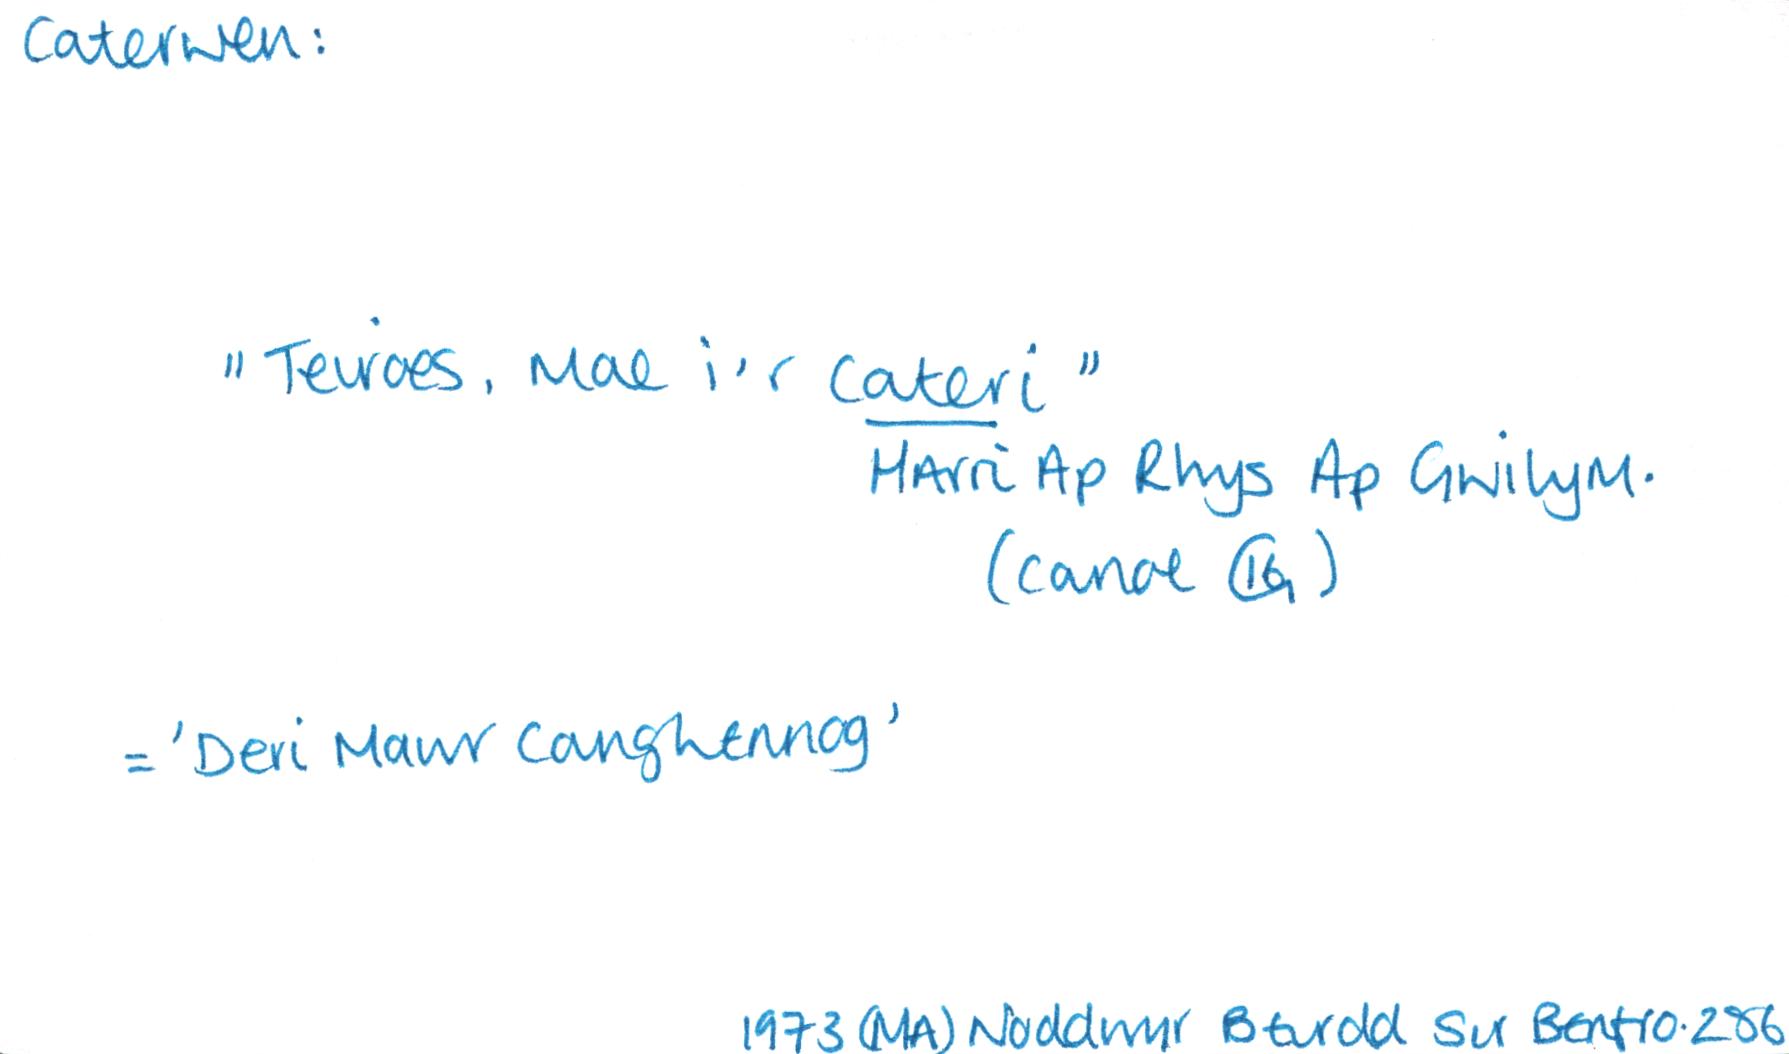 Caterwen:
"Teiroes, Mae i'r Cateri"
Harri Ap Rhys Ap Gwilym.
(canol 16g)
= 'Deri Mawr Canghennog'
1973 (MA) Noddwyr Beirdd Sir Benfro. 286